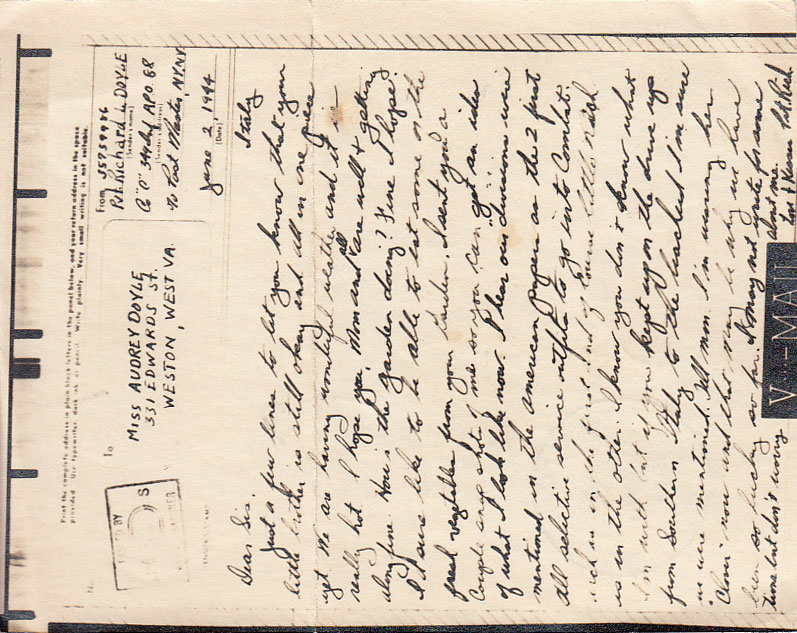 Print the complete address in plain block letters in the panel below, and your return address in the space
provided. Use typewriter, dark ink, or pencil. Write plainly. Very small writing is not suitable.
No.
To
MISS AUDREY DOYLE
331 EDWARDS ST.
WESTON, WEST VA.
From 35759986
(Sender's name)
Pvt. Richard L. DOYLE
(Sender's address)
Co "C" 349th Inf APO 88
℅ Post Master, N.Y. N.Y.
June 2 1944
(Date)
BY
S
EXAMINER
Italy
Dear Sis.
Just a few lines to let you know that your
little brother is still okay and all in one piece
yet. We are having wonderful weather and it is
really hot. I hope you, Mom and all are well & getting
along fine. How's the garden doing? Fine I hope.
I'd sure like to be able to eat some of the
fresh vegetables from your garden. I sent you a
couple snap shots of me so you can get an idea
of what I look like now. I hear our divisions were
mentioned in the american papers as the 2 first
all selective service outfits to go into Combat.
us in the other. I know you don't know what
I'm with but if you kept up on the drive up
from Southern Italy to the beachead I'm sure
we were mentioned. Tell mom I'm wearing her
"Chain" now and that may be why we have
been so lucky so far. I may not write for some
time but don't worry about me.
Love & Kisses Pvt. Rich
V···-MAIL